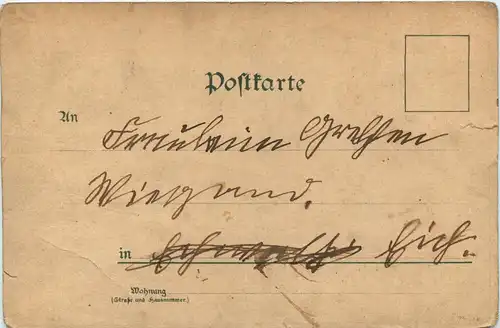 Postkarte
An
Fräulein Grethen
Wiegand.
in Eich.
Wohnung
(Straße und Hausnummer.)